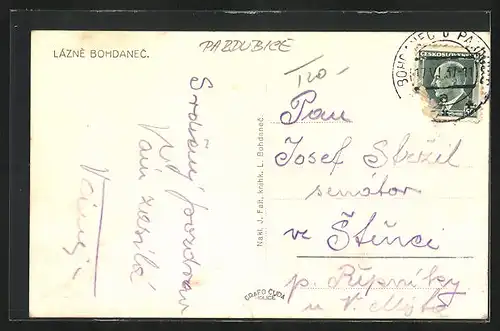 LÁZNĚ BOHDANEČ.
PARDUBICE
Srdečný pozdrav
Vám zasílá
Nakl. J. Fait, knihk. L. Bohdaneč.
GRAFO ČUDA
HOLICE
ČESKOSLOVENSKO
BOHDANEČ U PARDUBIC
Pan
Josef Stržil
senátor
ve Štěnci
p. Řepníky
u V. Mýta